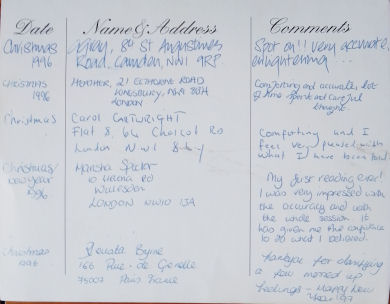 Date Name & Address Comments
Christmas
1996
8th St Augustines
Road, Camden, NW1 9RP
Spot on!! very accurate,
enlightening ...
Christmas
1996
Heather, 21
Kingsbury, NW9
London
Comforting and accurate, lot
of time spent and careful
thought
Christmas
Carol Cartwright
Flat 8, 64 Chalcot Rd
London NW1
Comforting and I
feel very pleased with
what I have been told
Christmas/
New year
1996
Marsha
10 Rd
Willesden
London NW10 13A
My first reading ever!
I was very impressed with
the accuracy and with
the whole session. It
has given me the confidence
to do what I believed.
Christmas
1996
Renata Byrne
166 Rue de Grenelle
75007 Paris France
Thankyou for clarifying
a few messed up
feelings - Happy New
Year '97